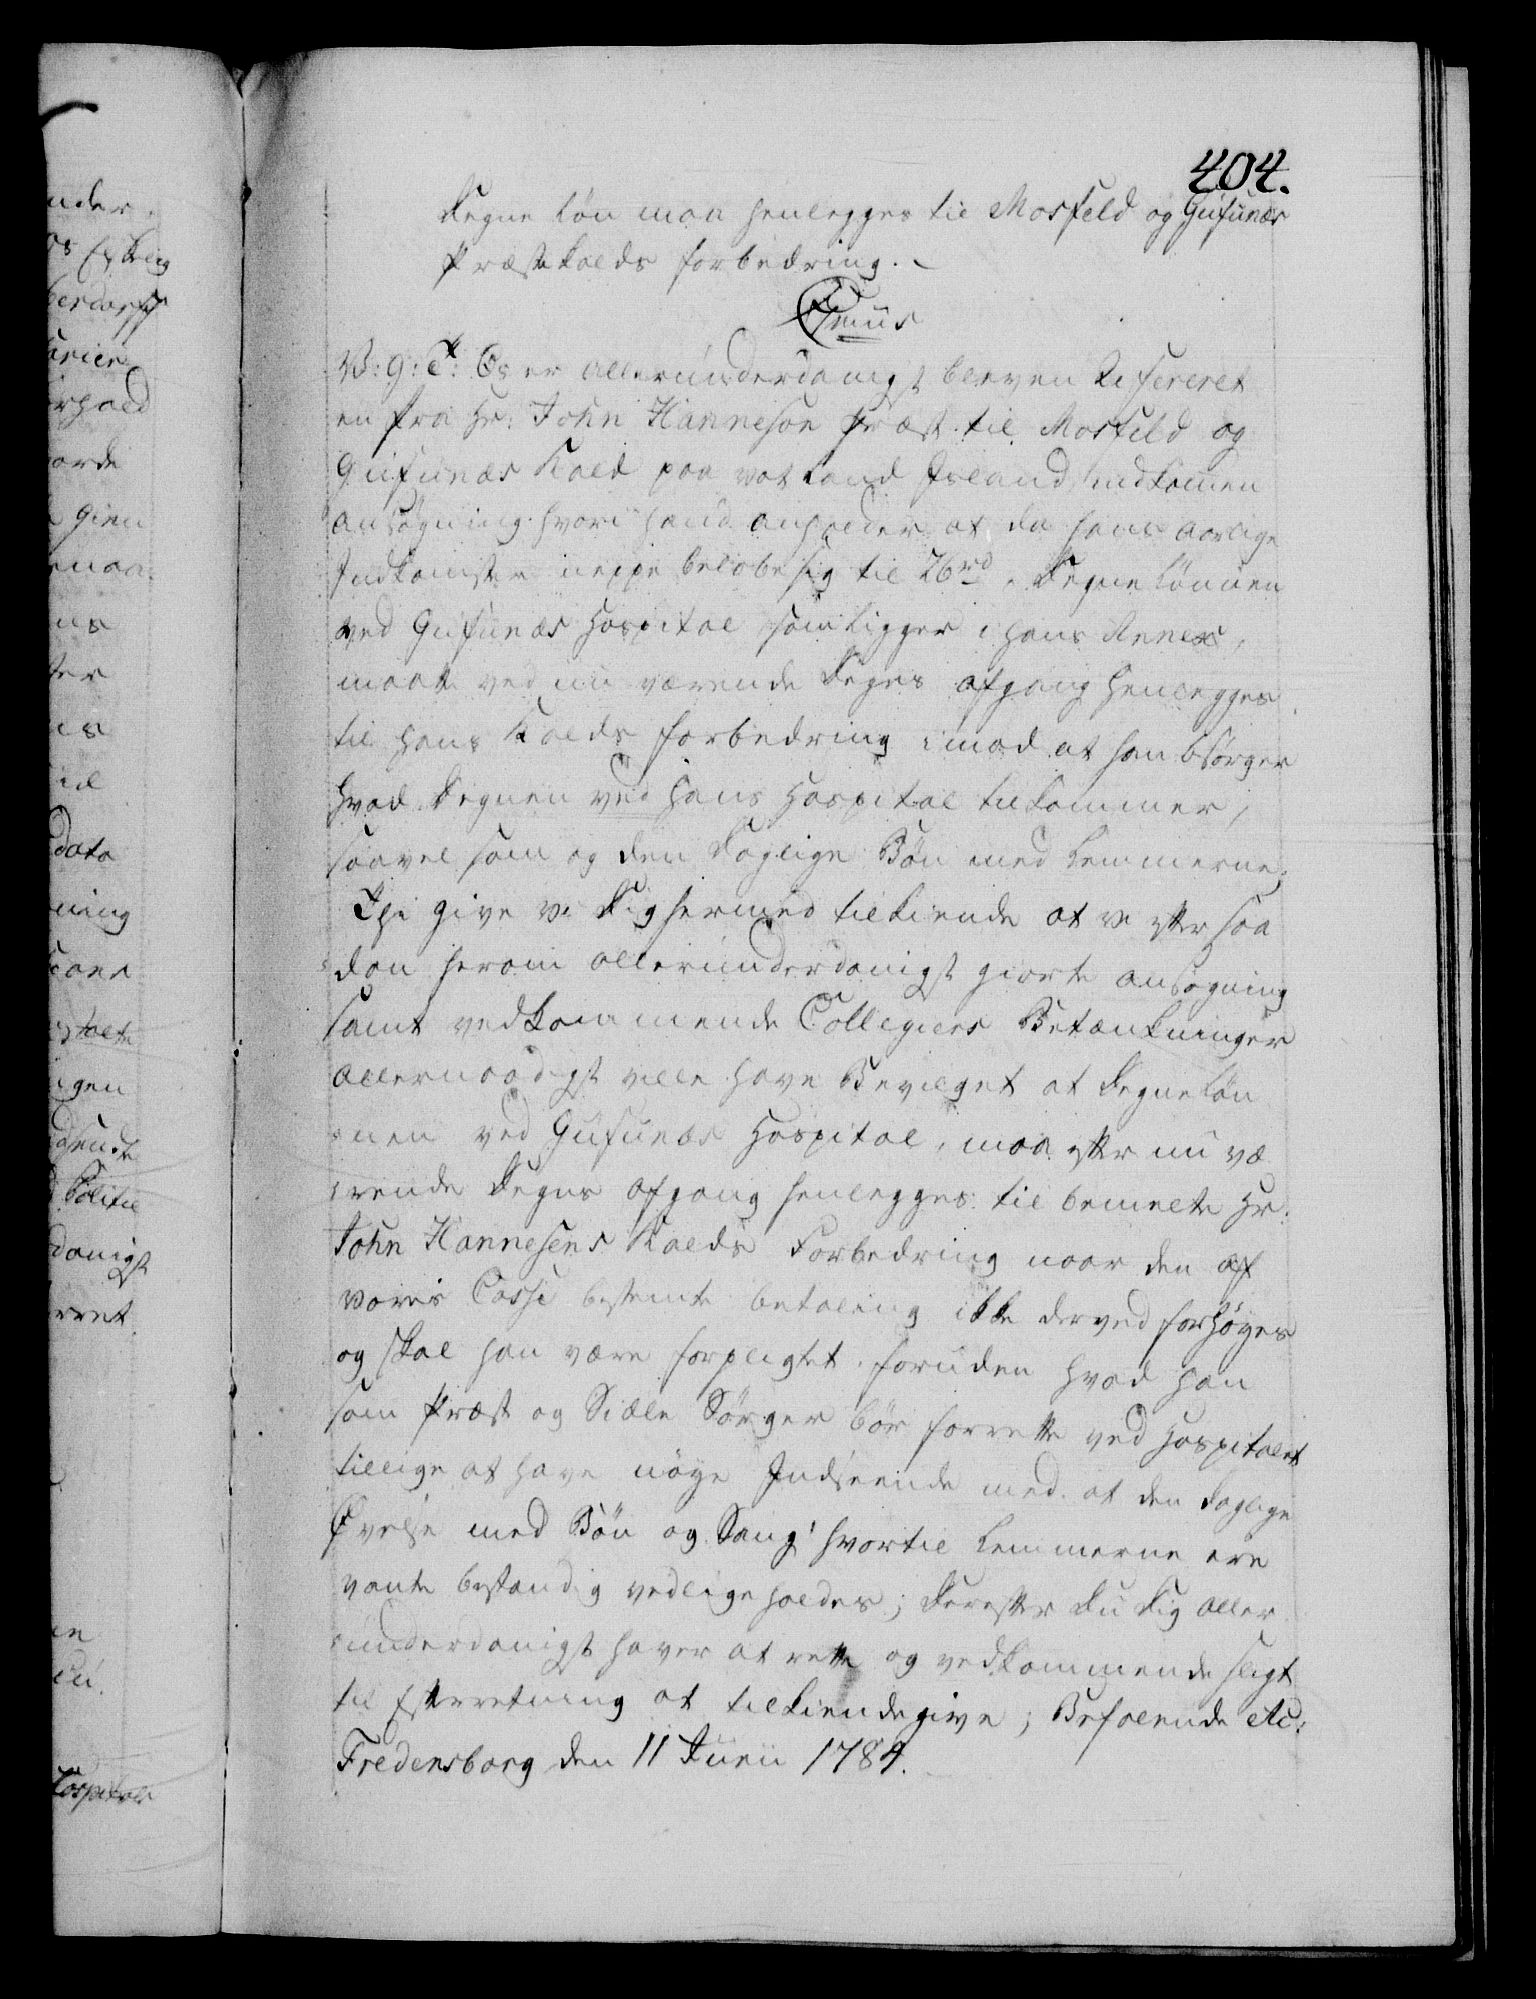 404.
Degne Løn maa henlegges til Mosfeld og Gufunæs
Præste Kalds forbedring.
C: 7mus
V: G: T: Os er allerunderdanigst bleven Refereret
en fra Hr: John Hanneson Præst til Mosfeld og
Gufunæs Kald paa vort Land Island indkommen
ansøgning hvori hand anholder at da hans aarlige
Indkomster neppe beløbe sig til 26 rd, Degne Lønnen
ved Gufunæs Hospital som ligger i hans Annex,
maatte ved nu værende Degns afgang henlegges
til hans Kalds forbedring imod at han besørger
hvad Degnen ved hans Hospital tilkommer,
saavel som og den daglige Bøn med Lemmerne;
Thi give vi Dig hermed tilkiende at vi efter saa
dan herom allerunderdanigst giorte ansøgning
samt vedkommende Collegiers Betænkninger
allernaadigst ville have Bevilget at Degne Løn
nen ved Gufunæs Hospital, maa efter nu væ
rende Degns afgang henlegges til bemelte Hr.
John Hannesens Kalds Forbedring naar den af
vores Casse bestemte betaling ikke derved forhøyes
og skal han være forpligtet foruden hvad han
som Præst og Siæle Sørger bør forrette ved Hospitalet
tillige at have nøye Indseende med at den daglige
Øvelse med Bøn og Sang hvortil Lemmerne ere
vante bestandig vedlige holdes; Derefter Du Dig aller
underdanigst haver at rette og vedkommende sligt
til Efterretning at tilkiendegive; Befalende etc:
Fredensborg den 11 Junii 1784.